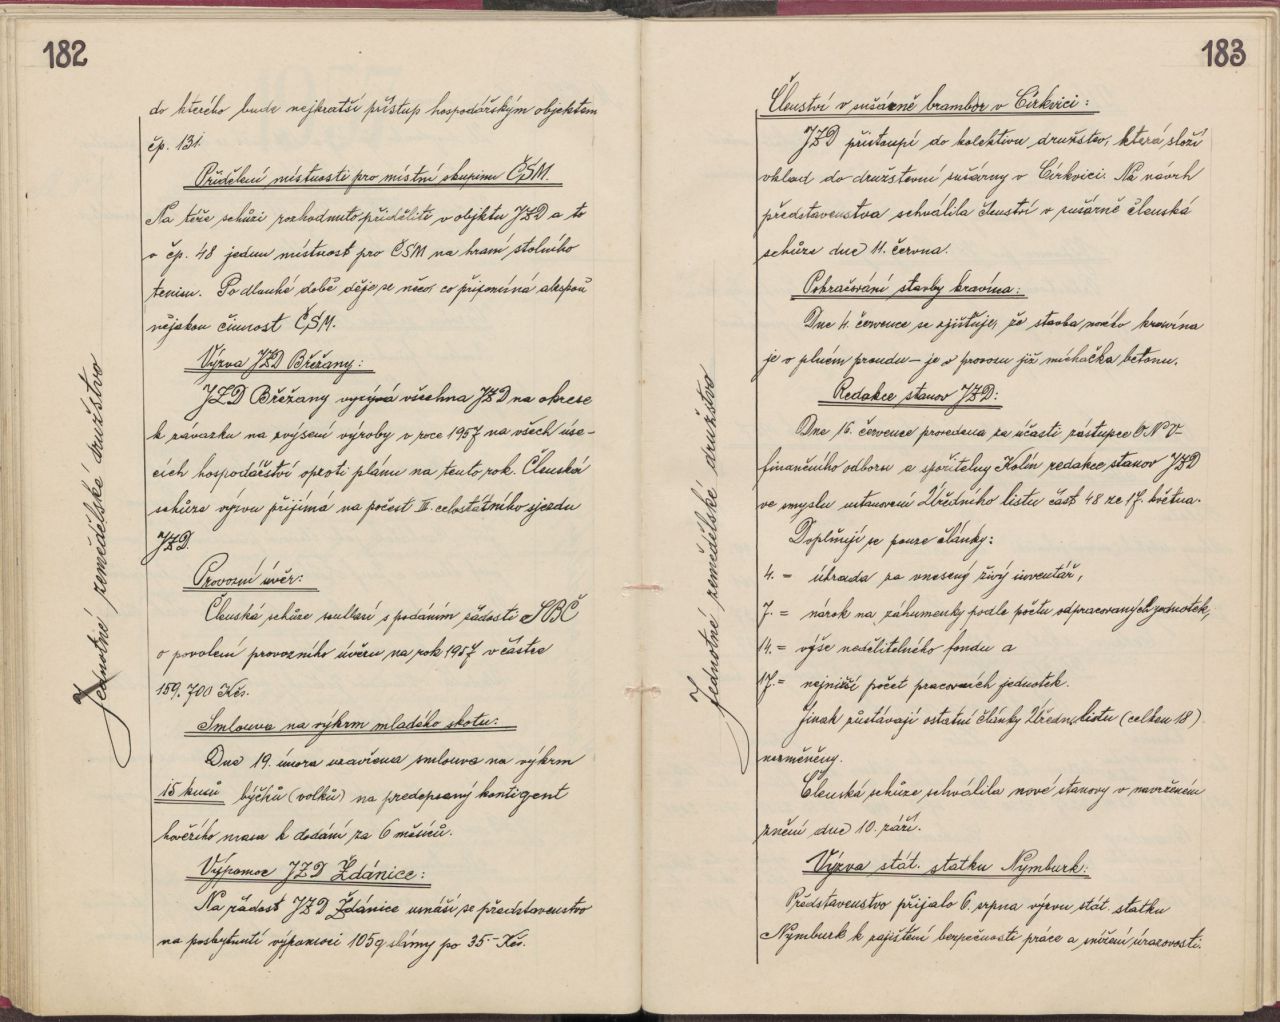 182
do kterého bude nejkratší přístup hospodářským objektem
čp. 131.
Přidělení místnosti pro místní skupinu ČSM.
Na téže schůzi rozhodnuto přiděliti v objektu JZD a to
v čp. 48 jednu místnost pro ČSM na hraní stolního
tenisu. Po dlouhé době děje se něco, co připomíná alespoň
nějakou činnost ČSM.
Výzva JZD Břežany:
JZD Břežany vyzývá všechna JZD na okrese
k závazku na zvýsení výroby v roce 1957 na všech úse-
cích hospodářství oproti plánu na tento rok. Členská
schůze výzvu přijímá na počest III. celostátního sjezdu
JZD.
Provozní úvěr:
Členská schůze souhlasí s podáním žádosti SBČ
o povolení provozního úvěru na rok 1957 v částce
159.700 Kčs.
Smlouva na výkrm mladého skotu:
Dne 19. února uzavřena smlouva na výkrm
15 kusů býčků (volků) na předepsaný kontigent
hovězího masa k dodání za 6 měsíců.
Výpomoc JZD Ždánice:
Na žádost JZD Ždánice usnáší se představenstvo
na poskytnutí výpomoci 105q slámy po 35.- Kčs.
Jednotné zemědělské družstvo
183
Členství v sušárně brambor v Církvici:
JZD přistoupí do kolektivu družstev, která složí
vklad do družstevní sušárny v Církvici. Na návrh
představenstva schválila členství v sušárně členská
schůze dne 11. června.
Pokračování stavby kravína:
Dne 4. července se zjišťuje, že stavba nového kravína
je v plném proudu - je v provozu již míchačka betonu.
Redakce stanov JZD:
Dne 16. července provedena za účasti zástupce ONV-
finančního odboru a spořitelny Kolín redakce stanov JZD
ve smyslu ustanovení Úředního listu část 48 ze 17. května.
Doplňují se pouze články:
4. = úhrada za vnesený živý inventář,
7. = nárok na záhumenky podle počtu odpracovaných jednotek,
14. = výše nedělitelného fondu a
17. = nejnižší počet pracovních jednotek.
Jinak zůstávají ostatní články Úředn. listu (celkem 18)
nezměněny.
Členská schůze schválila nové stanovy v navrženém
znění dne 10. září.
Výzva stát. statku Nymburk:
Představenstvo přijalo 6. srpna výzvu stát. statku
Nymburk k zajištění bezpečnosti práce a snížení úrazovosti.
Jednotné zemědělské družstvo